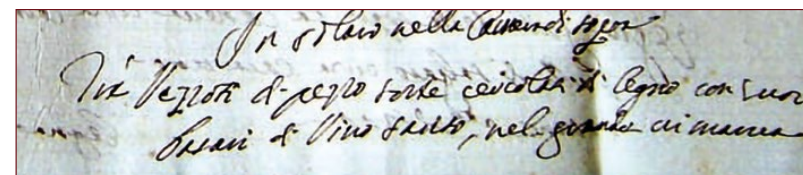 In solaro nella Camera di sopra
Tre Vezzoti di pezzo sorte cercolati di legno con suoi
Vasari di Vino santo, nel grande vi manca